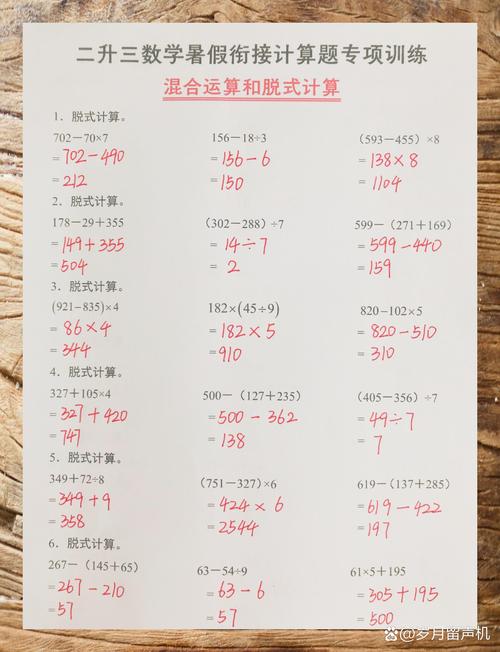 二升三数学暑假衔接计算题专项训练
混合运算和脱式计算
1．脱式计算。
702－70×7 156－18÷3 （593－455）×8
=702－490 =156－6 =138×8
=212 =150 =1104
2．脱式计算。
178－29＋355 （302－288）÷7 599－（271＋169）
=149＋355 =14÷7 =599－440
=504 =2 =159
3．脱式计算。
(921－835)×4 182×(45÷9) 820－102×5
=86×4 =182×5 =820－510
=344 =910 =310
4．脱式计算。
327＋105×4 500－（127＋235） （405－356）÷7
=327＋420 =500－362 =49÷7
=747 =138 =7
5．脱式计算。
349＋72÷8 （751－327）×6 619－（137＋285）
=349＋9 =424×6 =619－422
=358 =2544 =197
6．脱式计算。
267－（145＋65） 63－54÷9 61×5＋195
=267－210 =63－6 =305＋195
=57 =57 =500
@岁月留声机